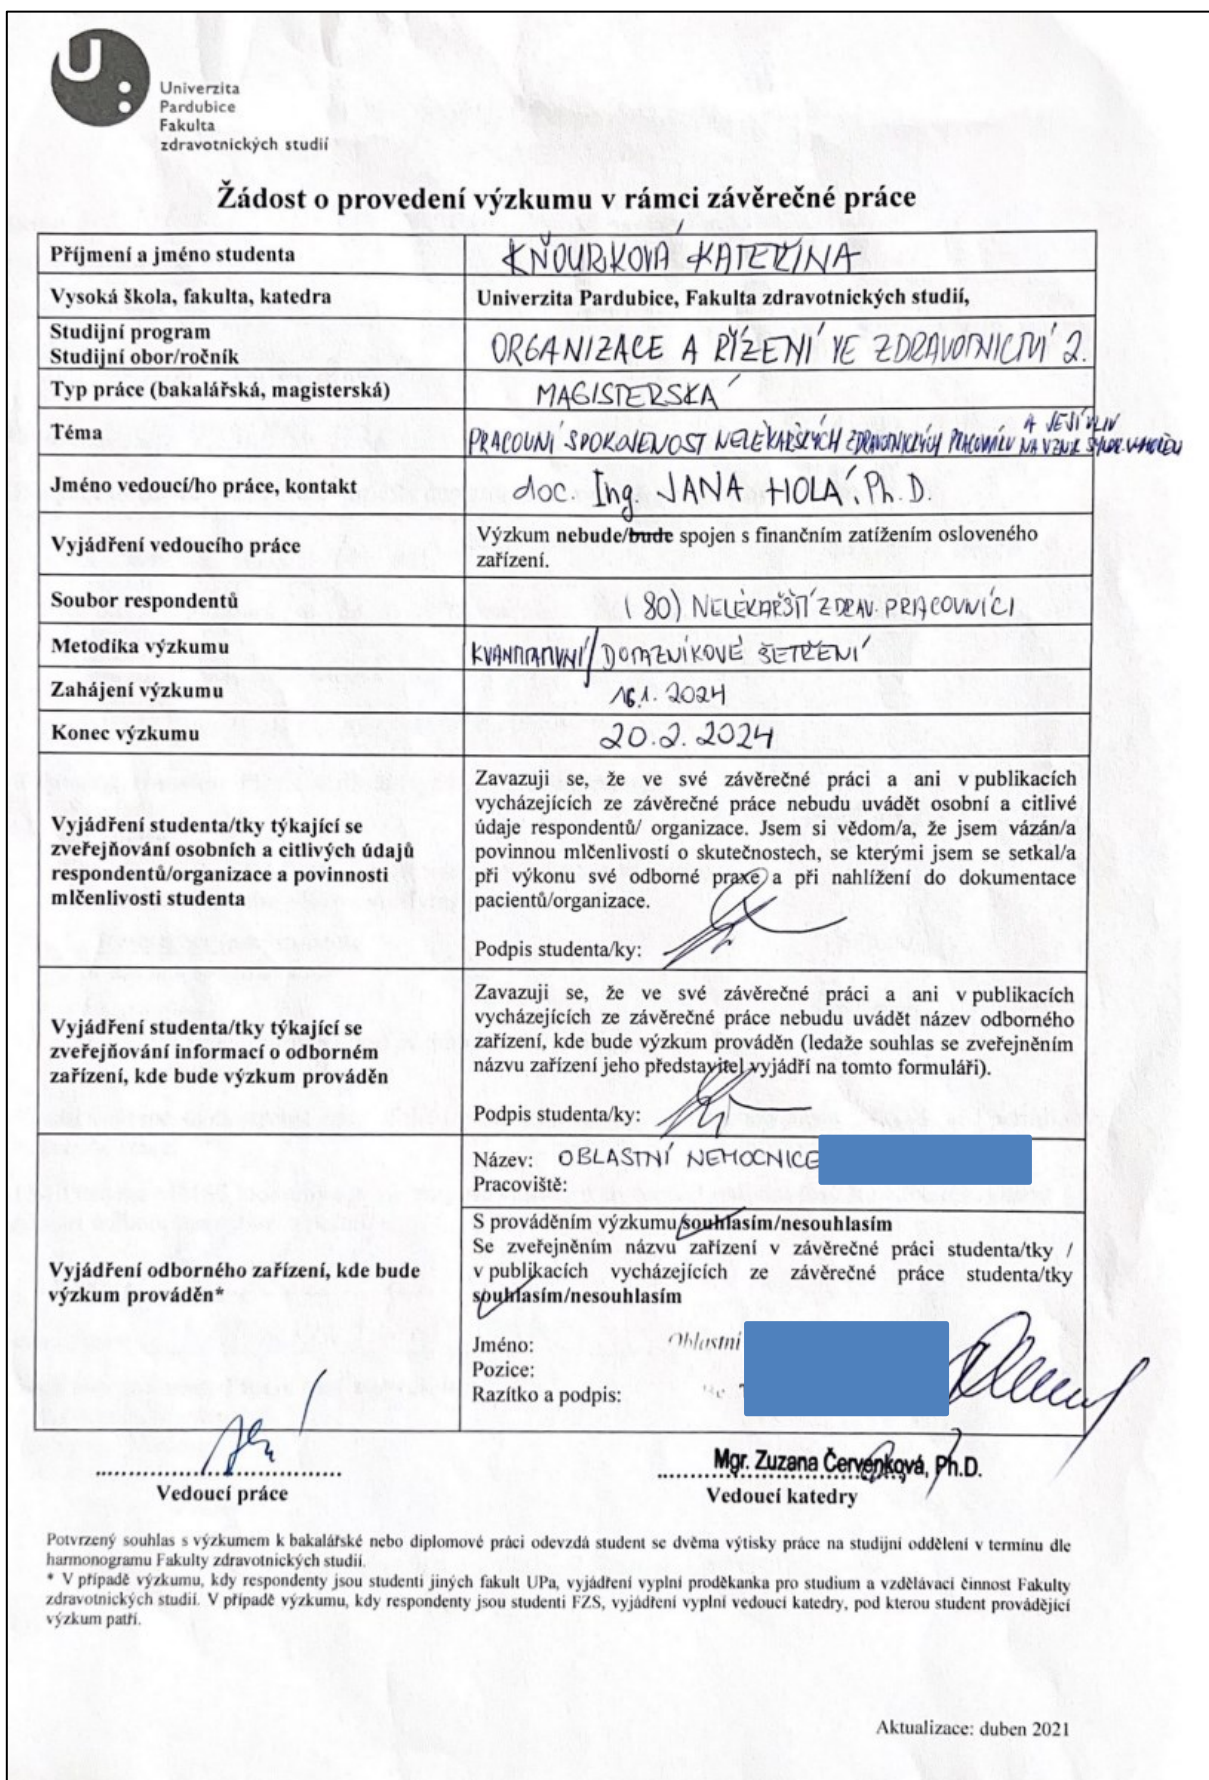 U:
Univerzita
Pardubice
Fakulta
zdravotnických studií
Žádost o provedení výzkumu v rámci závěrečné práce
Příjmení a jméno studenta KŇOURKOVÁ KATEŘINA
Vysoká škola, fakulta, katedra Univerzita Pardubice, Fakulta zdravotnických studií,
Studijní program
Studijní obor/ročník ORGANIZACE A ŘÍZENÍ VE ZDRAVOTNICTVÍ 2.
Typ práce (bakalářská, magisterská) MAGISTERSKÁ
Téma PRACOVNÍ SPOKOJENOST NELÉKAŘSKÝCH ZDRAVOTNICKÝCH PRACOVNÍKŮ A JEJÍ VLIV NA VZNIK SYNDR. VYHOŘENÍ
Jméno vedoucí/ho práce, kontakt doc. Ing. JANA HOLÁ, Ph.D.
Vyjádření vedoucího práce Výzkum nebude/bude spojen s finančním zatížením osloveného
zařízení.
Soubor respondentů (80) NELÉKAŘŠTÍ ZDRAV. PRACOVNÍCI
Metodika výzkumu KVANTITATIVNÍ/DOTAZNÍKOVÉ ŠETŘENÍ
Zahájení výzkumu 16.1.2024
Konec výzkumu 20.2.2024
Vyjádření studenta/tky týkající se
zveřejňování osobních a citlivých údajů
respondentů/organizace a povinnosti
mlčenlivosti studenta
Zavazuji se, že ve své závěrečné práci a ani v publikacích
vycházejících ze závěrečné práce nebudu uvádět osobní a citlivé
údaje respondentů/ organizace. Jsem si vědom/a, že jsem vázán/a
povinnou mlčenlivostí o skutečnostech, se kterými jsem se setkal/a
při výkonu své odborné praxe a při nahlížení do dokumentace
pacientů/organizace.
Podpis studenta/ky:
Vyjádření studenta/tky týkající se
zveřejňování informací o odborném
zařízení, kde bude výzkum prováděn
Zavazuji se, že ve své závěrečné práci a ani v publikacích
vycházejících ze závěrečné práce nebudu uvádět název odborného
zařízení, kde bude výzkum prováděn (ledaže souhlas se zveřejněním
názvu zařízení jeho představitel vyjádří na tomto formuláři).
Podpis studenta/ky:
Vyjádření odborného zařízení, kde bude
výzkum prováděn*
Název: OBLASTNÍ NEMOCNICE
Pracoviště:
S prováděním výzkumu souhlasím/nesouhlasím
Se zveřejněním názvu zařízení v závěrečné práci studenta/tky /
v publikacích vycházejících ze závěrečné práce studenta/tky
souhlasím/nesouhlasím
Jméno: Oblastní
Pozice:
Razítko a podpis:
Mgr. Zuzana Červenková, Ph.D.
Vedoucí práce Vedoucí katedry
Potvrzený souhlas s výzkumem k bakalářské nebo diplomové práci odevzdá student se dvěma výtisky práce na studijní oddělení v termínu dle
harmonogramu Fakulty zdravotnických studií.
* V případě výzkumu, kdy respondenty jsou studenti jiných fakult UPa, vyjádření vyplní proděkanka pro studium a vzdělávací činnost Fakulty
zdravotnických studií. V případě výzkumu, kdy respondenty jsou studenti FZS, vyjádření vyplní vedoucí katedry, pod kterou student provádějící
výzkum patří.
Aktualizace: duben 2021